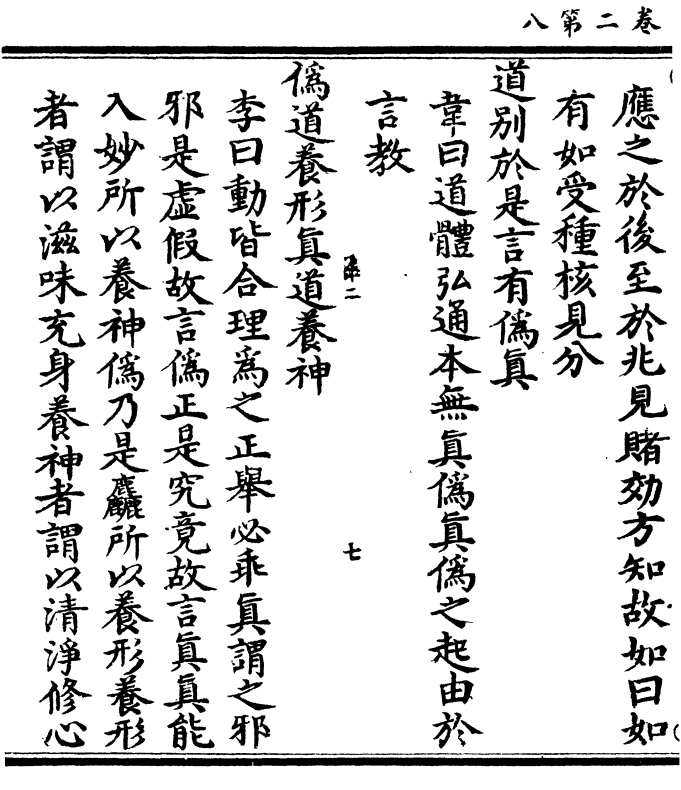 卷二第八
應之於後至於兆見賭効方知故如曰如
有如受種核見分
道別於是言有僞眞
韋曰道體弘通本無眞僞眞僞之起由於
言教
二
七
僞道養形眞道養神
李曰動皆合理爲之正舉必乖眞謂之邪
邪是虛假故言僞正是究竟故言眞眞能
入妙所以養神僞乃是麤所以養形養形
者謂以滋味充身養神者謂以清淨修心